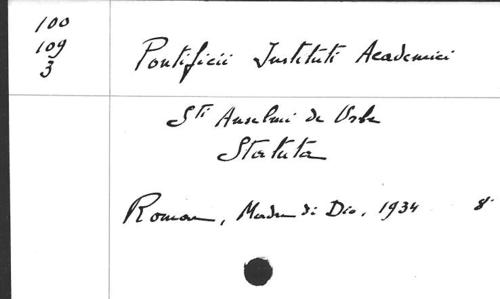 100
109
3
Pontificii Instituti Academici
Sti Anselmi de Urbe
Statuta
Romae, Madre di Dio, 1934 8°